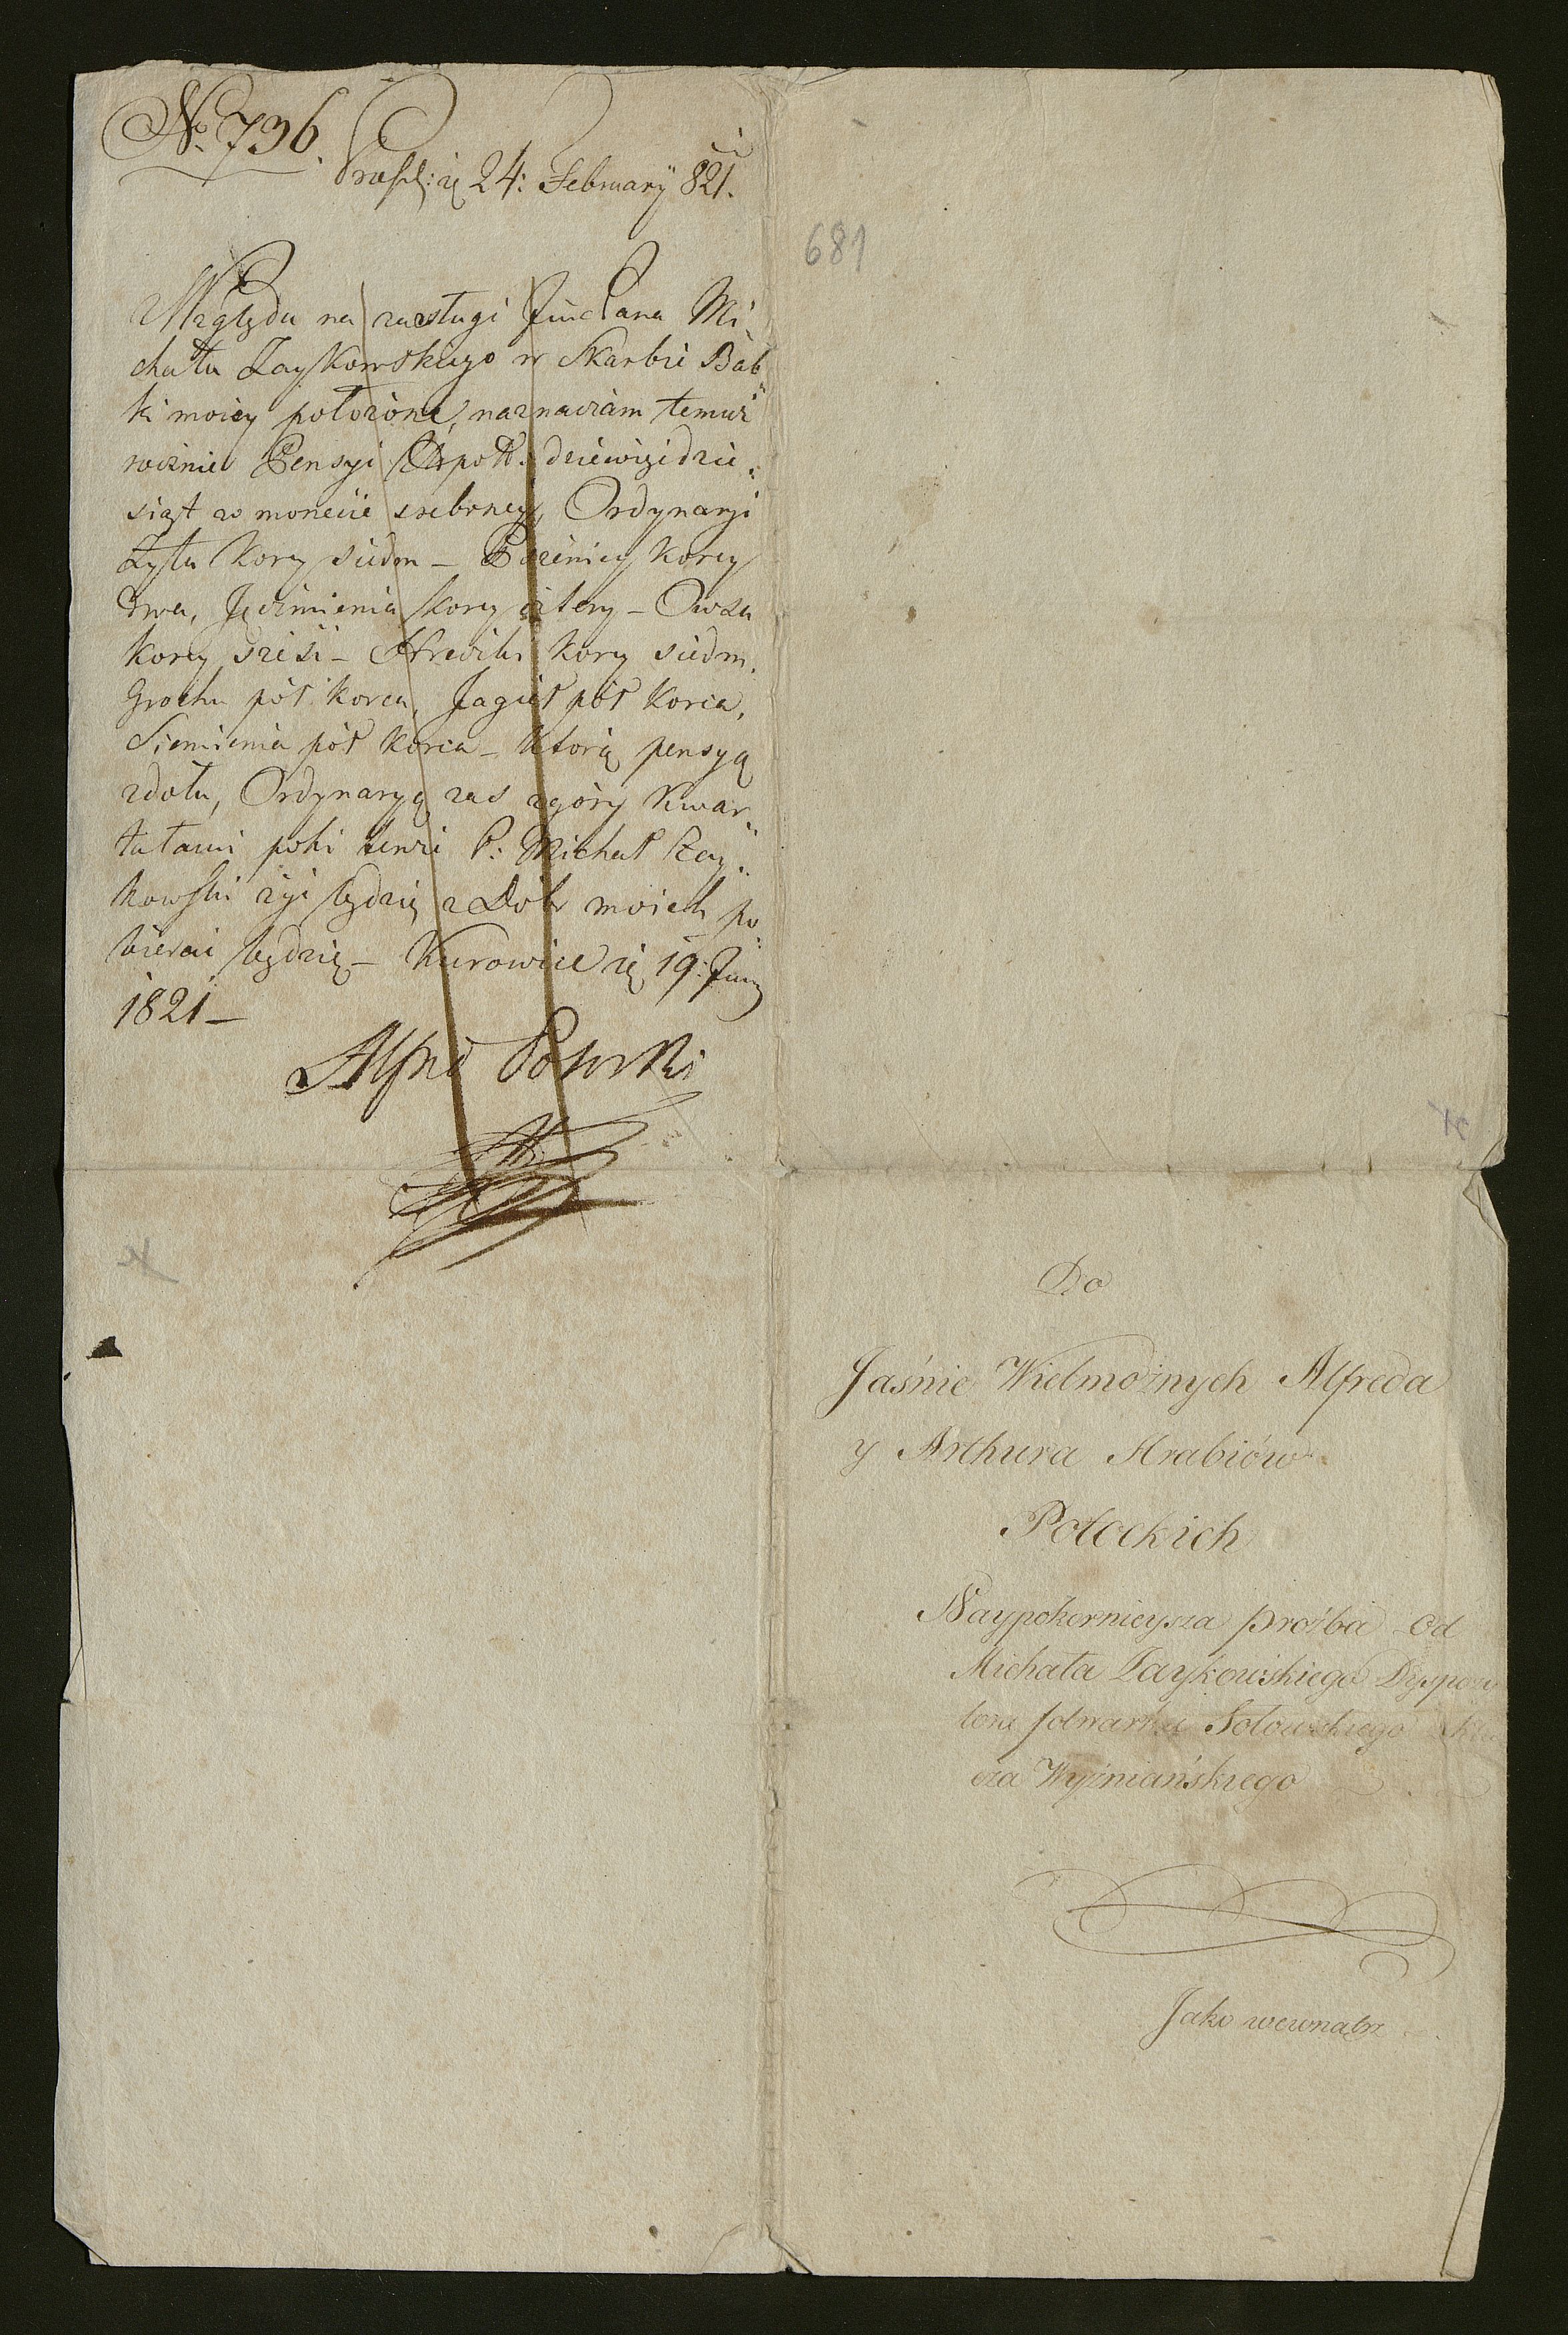 No. 796.
Præs: die 24: February 821.
Względu na zasługi Jmć Pana Mi
chała Zaykowskiego w Skarbie Bab
ki moiey położone, naznaczam temuż
rocznie Pensyi dziewięćdzie
siąt w monecie srebrney, Ordynaryi
Żyta Korcy siedm – Pszenicy Korcy
dwa, Jęczmienia Korcy cztery – Owsa
Korcy sześć – Hreczki Korcy siedm.
Grochu pół Korca, Jagieł pół Korca,
Siemienia pół Korca – którą pensyą
zdołu, Ordynaryą zaś zgóry Kwar
tałami poki tenże P: Michał Zay
kowski żyć będzie z Dóbr moich po
bierać będzie – Kurowice die 19: Juny
1821 –
Alfred Potocki
681
Do
Jaśnie Wielmożnych Alfreda
y Arthura Hrabiów
Potockich
Naypokornieysza proźba od
Michała Zaykowskiego Dyspozy
tora folwarku Sołowskiego Klu
cza Wyźniańskiego
Jako wewnątrz